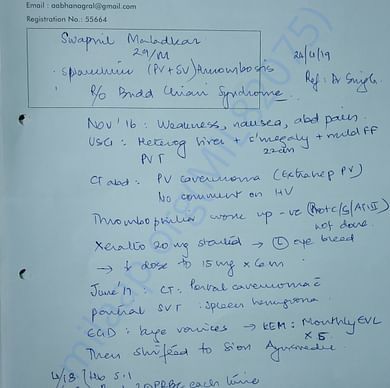 Email : aabhanagral@gmail.com
Registration No.: 55664
Swapnil Maladkar
29/M
24/4/19
Splanchnic (PV+SV) thrombosis
Ref: Dr
R/O Budd Chiari Syndrome
Nov '16 : Weakness, nausea, abd pain
USG : Heterog liver + s'megaly + mild FF
PVT 22cm
CT abd : PV cavernoma (Extrahep PV)
No comment on HV
Thrombophilia work up -ve (Prot C/S/AT III
not done
Xeralto 20 mg started → (L) eye bleed
→ ↓ dose to 15 mg x 6m
June '17 CT : Portal cavernoma c̄
partial SVT. Spleen hemangioma
EGD : large varices → KEM : Monthly EVL
x 5
Then shifted to Sion Ayurvedic
4/18 Hb 5.1
2 PRBC each time